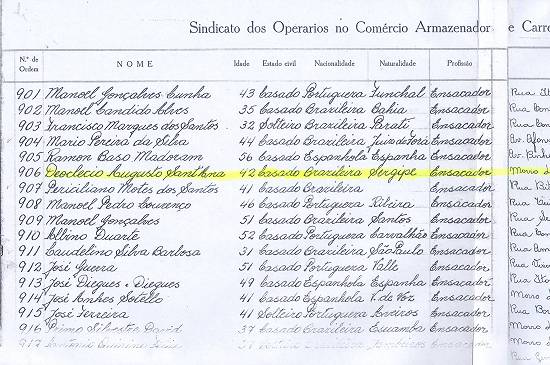 Sindicato dos Operarios no Comércio Armazenador e Carre
N.º de Ordem NOME Idade Estado civil Nacionalidade Naturalidade Profissão
901 Manoel Gonçalves Cunha 43 Casado Portugueza Funchal Ensacador Rua
902 Manoel Candido Alves 35 Casado Brazileira Bahia Ensacador Rua
903 Francisco Marques dos Santos 32 Solteiro Brazileira Parati Ensacador Rua
904 Mario Pereira da Silva 44 Casado Brazileira Juiz de Fóra Ensacador Av. Afons
905 Ramon Baso Madoram 56 Casado Espanhola Espanha Ensacador Av.
906 Deoclecio Augusto Sant'Anna 42 Casado Brazileira Sergipe Ensacador Morro d
907 Periciliano Motes dos Santos 41 Casado Brazileira Ensacador Rua
908 Manoel Pedro Lourenço 46 Casado Portugueza Ribeira Ensacador Rua
909 Manoel Gonçalves 51 Casado Brazileira Santos Ensacador Rua
910 Albino Duarte 52 Casado Portugueza Carvalhão Ensacador Rua
911 Laudelino Silva Barbosa 31 Casado Brazileira São Paulo Ensacador Rua
912 José Guerra 51 Casado Portugueza Valle Ensacador Rua
913 José Diegues y Diegues 49 Casado Espanhola Espanha Ensacador Rua
914 José Sotello 41 Casado Espanhola V. de Voz Ensacador Morro
915 José Ferreira 41 Solteiro Portugueza Ensacador Rua
916 Primo Silvestre David 37 Casado Brazileira Ensacador Morro
917 Antonio Brazileira Ensacador Rua